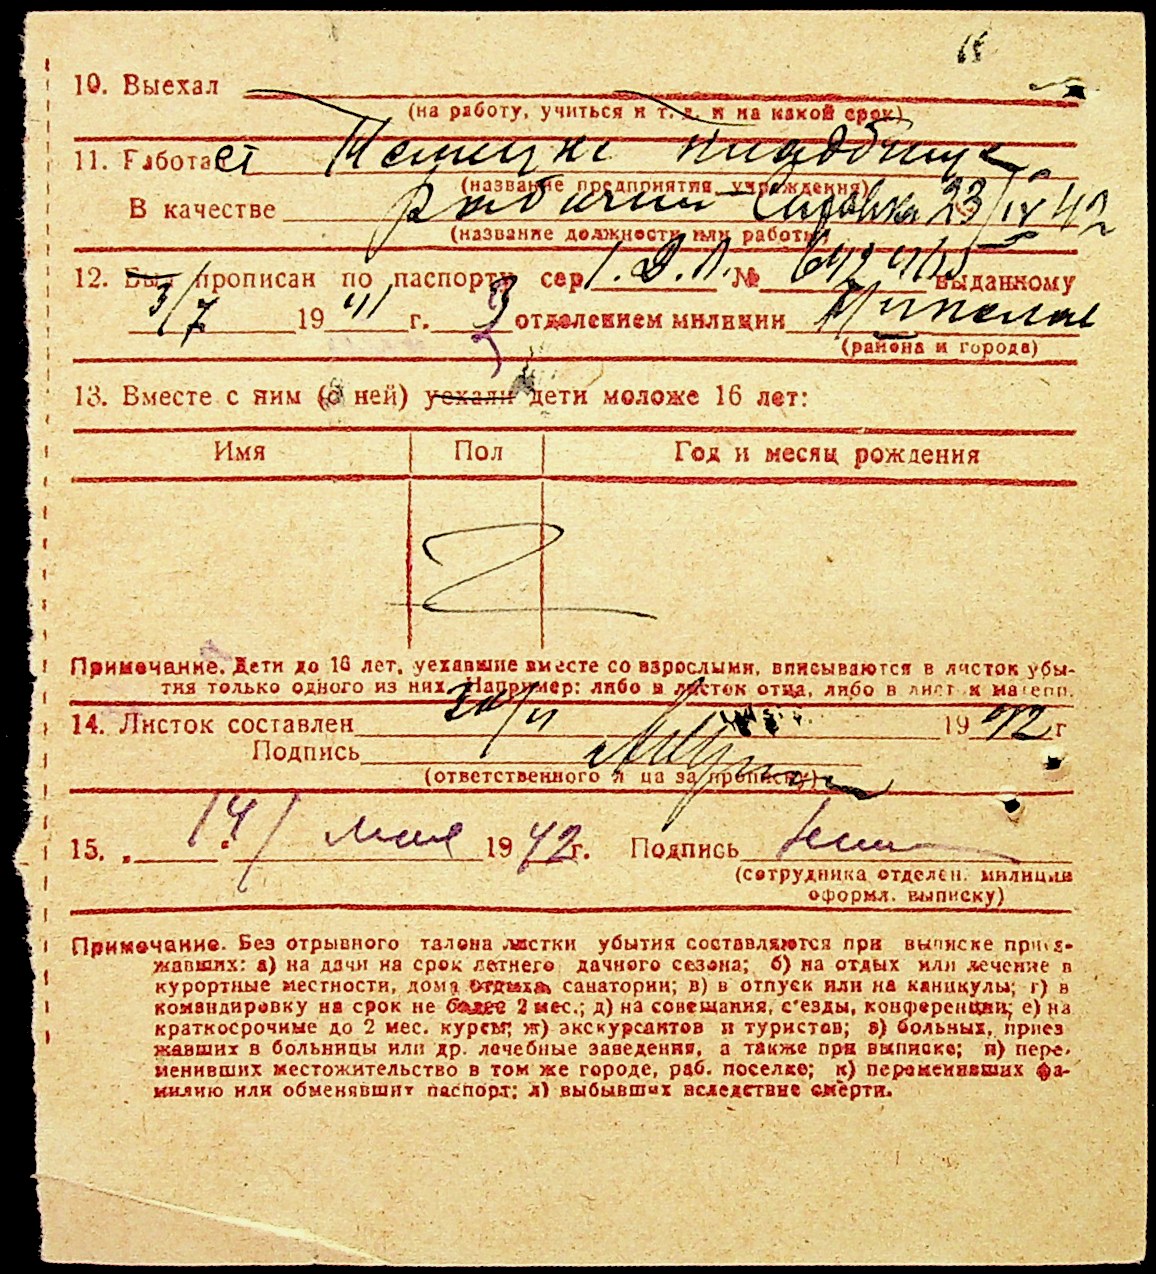 10. Выехал
(на работу, учиться и т. д. и на какой срок)
11. Работает
(название предприятия учреждения)
В качестве рабочий - Справка 23/IV 42
(название должности или работы)
12. Был прописан по паспорту сер. №
выданному
3/7 1941 г. 3 отделением милиции
(района и города)
13. Вместе с ним (с ней) уехали дети моложе 16 лет:
Имя Пол Год и месяц рождения
Z
Примечание. Дети до 16 лет, уехавшие вместе со взрослыми, вписываются в листок убы-
тия только одного из них. Например: либо в листок отца, либо в лист к матери.
14. Листок составлен 1942 г
Подпись
(ответственного л ца за прописку)
15. „14" мая 1942 г. Подпись
(сотрудника отделен. милиции
оформл. выписку)
Примечание. Без отрывного талона листки убытия составляются при выписке приез-
жавших: а) на дачи на срок летнего дачного сезона; б) на отдых или лечение в
курортные местности, дома отдыха, санатории; в) в отпуск или на каникулы; г) в
командировку на срок не более 2 мес.; д) на совещания, с'езды, конференции; е) на
краткосрочные до 2 мес. курсы; ж) экскурсантов и туристов; з) больных, приез
жавших в больницы или др. лечебные заведения, а также при выписке; и) пере-
менивших местожительство в том же городе, раб. поселке; к) переменивших фа-
милию или обменявшит паспорт; л) выбывших вследствие смерти.